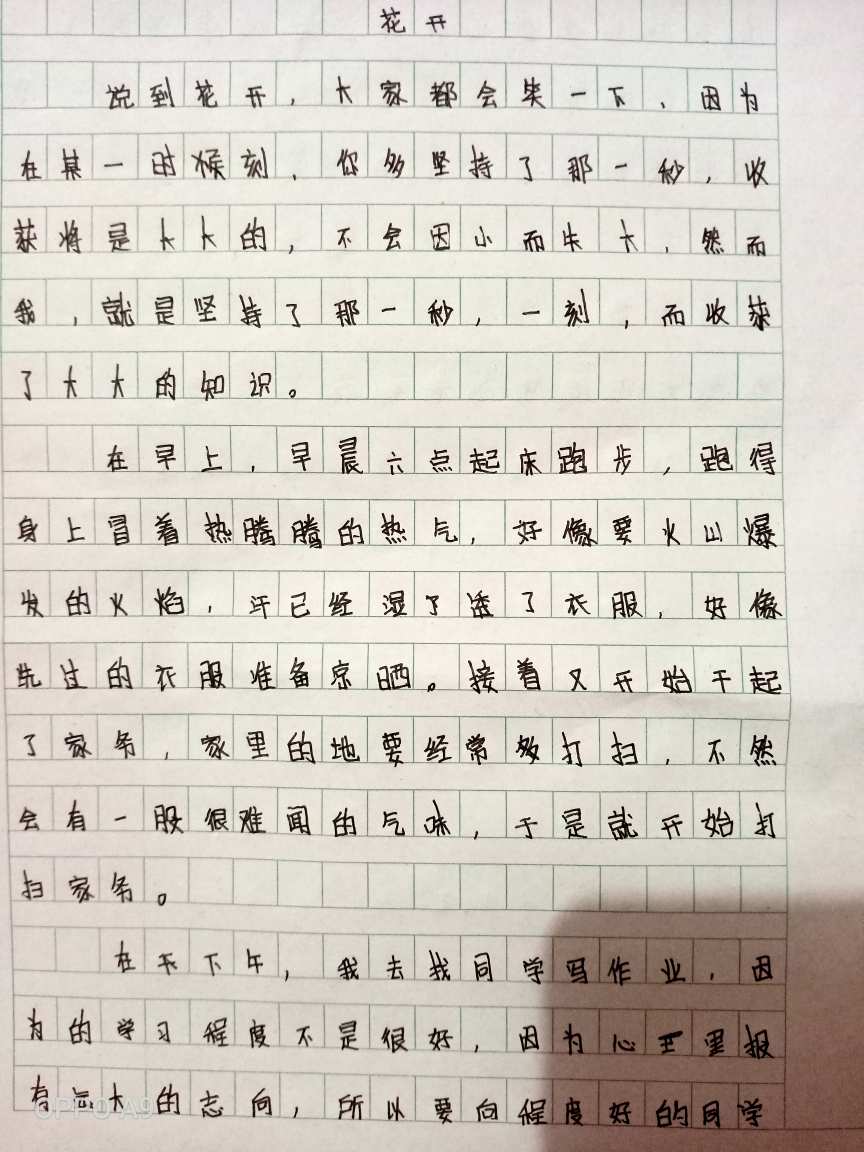 花开
说到花开，大家都会笑一下，因为
在某一时候刻，你多坚持了那一秒，收
获将是大大的，不会因小而失大，然而
我，就是坚持了那一秒，一刻，而收获
了大大的知识。
在早上，早晨六点起床跑步，跑得
身上冒着热腾腾的热气，好像要火山爆
发的火焰，汗已经湿了透了衣服，好像
洗过的衣服准备凉晒。接着又开始干起
了家务，家里的地要经常多打扫，不然
会有一股很难闻的气味，于是就开始打
扫家务。
在下午，我去找同学写作业，因
为的学习程度不是很好，因为心里报
有远大的志向，所以要向程度好的同学
OPPO A9